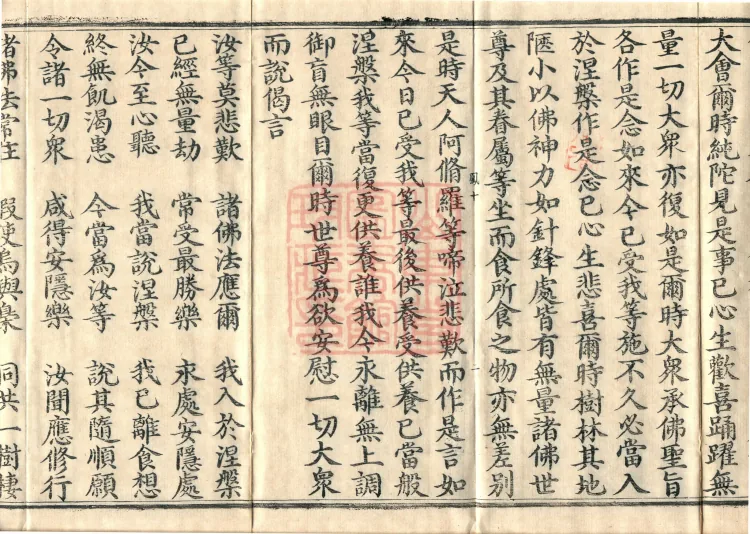 大會爾時純陀見是事已心生歡喜踊躍無
量一切大眾亦復如是爾時大眾承佛聖旨
各作是念如來今已受我等施不久必當入
於涅槃作是念已心生悲喜爾時樹林其地
陿小以佛神力如針鋒處皆有無量諸佛世
尊及其眷屬等坐而食所食之物亦無差別
是時天人阿脩羅等啼泣悲歎而作是言如
來今日已受我等最後供養受供養已當般
涅槃我等當復更供養誰我今永離無上調
御盲無眼目爾時世尊為欲安慰一切大眾
而說偈言
汝等莫悲歎 諸佛法應爾 我入於涅槃
已經無量劫 常受最勝樂 永處安隱處
汝今至心聽 我當說涅槃 我已離食想
終無飢渴患 今當為汝等 說其隨順願
令諸一切眾 咸得安隱樂 汝聞應修行
諸佛法常住 假使烏與梟 同共一樹棲